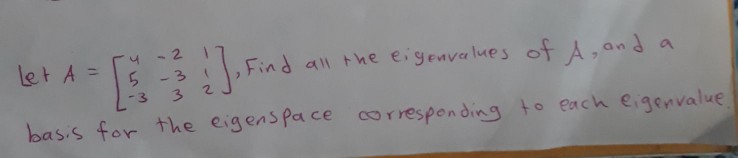 Let A = [4 -2 1
5 -3 1
-3 3 2], Find all the eigenvalues of A, and a
basis for the eigenspace corresponding to each eigenvalue